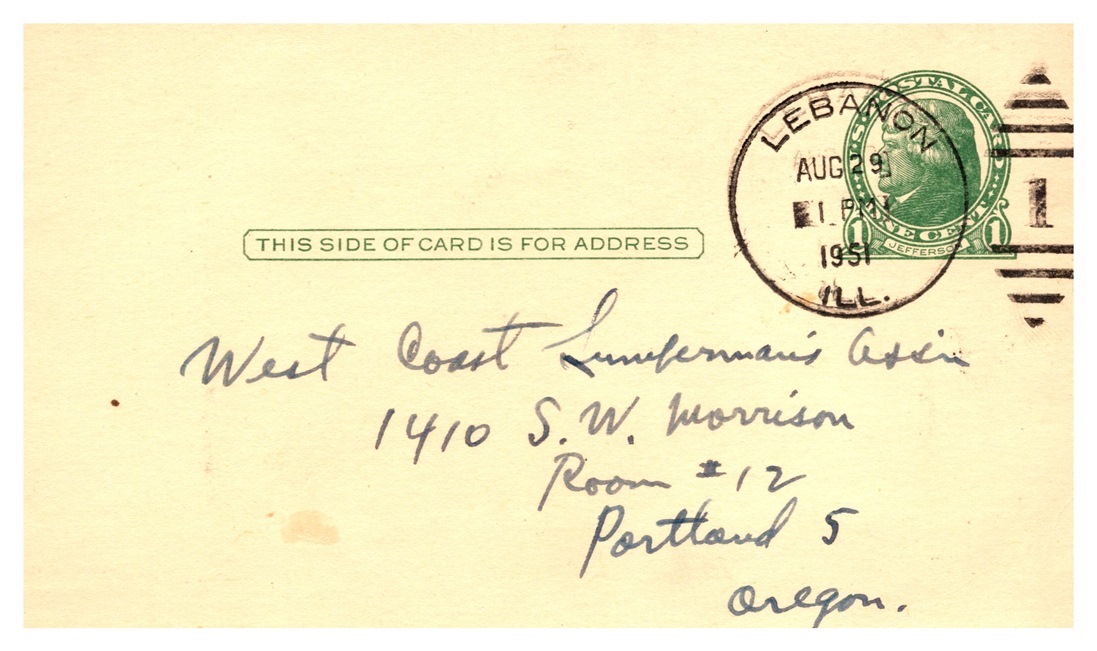 LEBANON
AUG 29
1 PM
1951
ILL.
1
U.S. POSTAL CARD
ONE CENT
1 JEFFERSON 1
THIS SIDE OF CARD IS FOR ADDRESS
West Coast Lumberman's Ass'n
1410 S.W. Morrison
Room #12
Portland 5
Oregon.